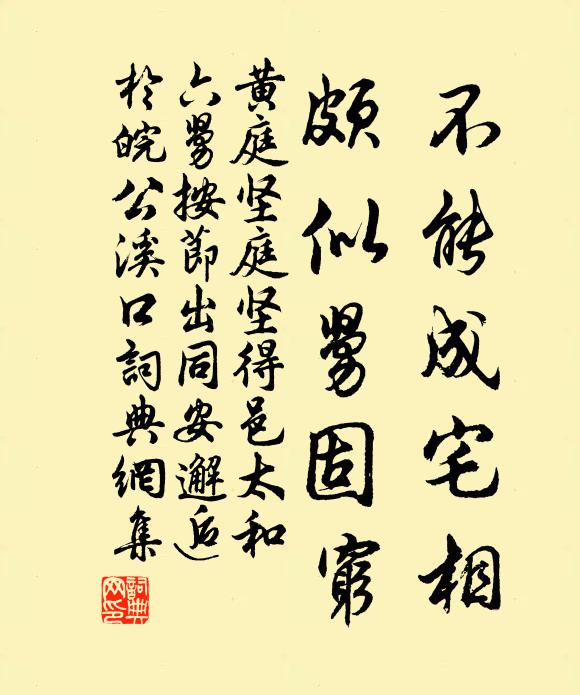 不能成宅相
頗似舅固窮
黄庭坚庭坚得邑太和
六舅按節出同安邂逅
於皖公溪口詞典網集
詞典網印